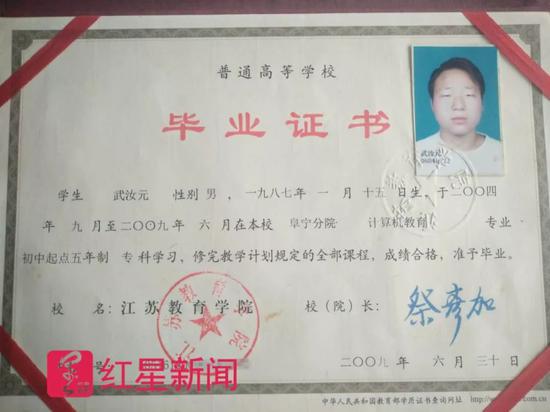 普通高等学校
毕业证书
武汝元
学生 武汝元 性别 男，一九八七年 一 月 十五日生，于二〇〇四
年 九月至二〇〇九年 六月在本校 阜宁分院 计算机教育 专业
初中起点五年制 专科学习，修完教学计划规定的全部课程，成绩合格，准予毕业。
校 名：江苏教育学院 校（院）长：
江苏教育学院
号
红星新闻
二〇〇九年 六月三十日
中华人民共和国教育部学历证书查询网址